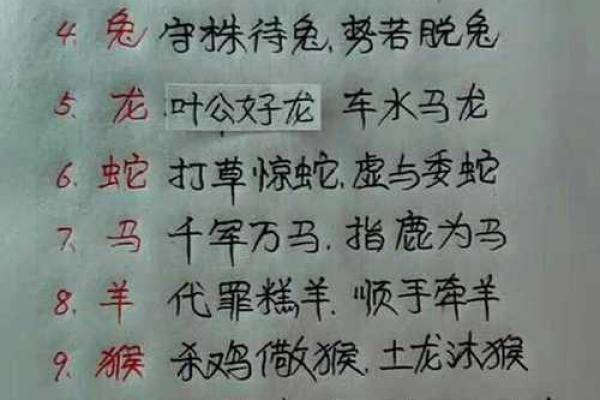 4. 兔 守株待兔, 势若脱兔
5. 龙 叶公好龙 车水马龙
6. 蛇 打草惊蛇, 虚与委蛇
7. 马 千军万马, 指鹿为马
8. 羊 代罪糕羊, 顺手牵羊
9. 猴 杀鸡儆猴, 土龙沐猴